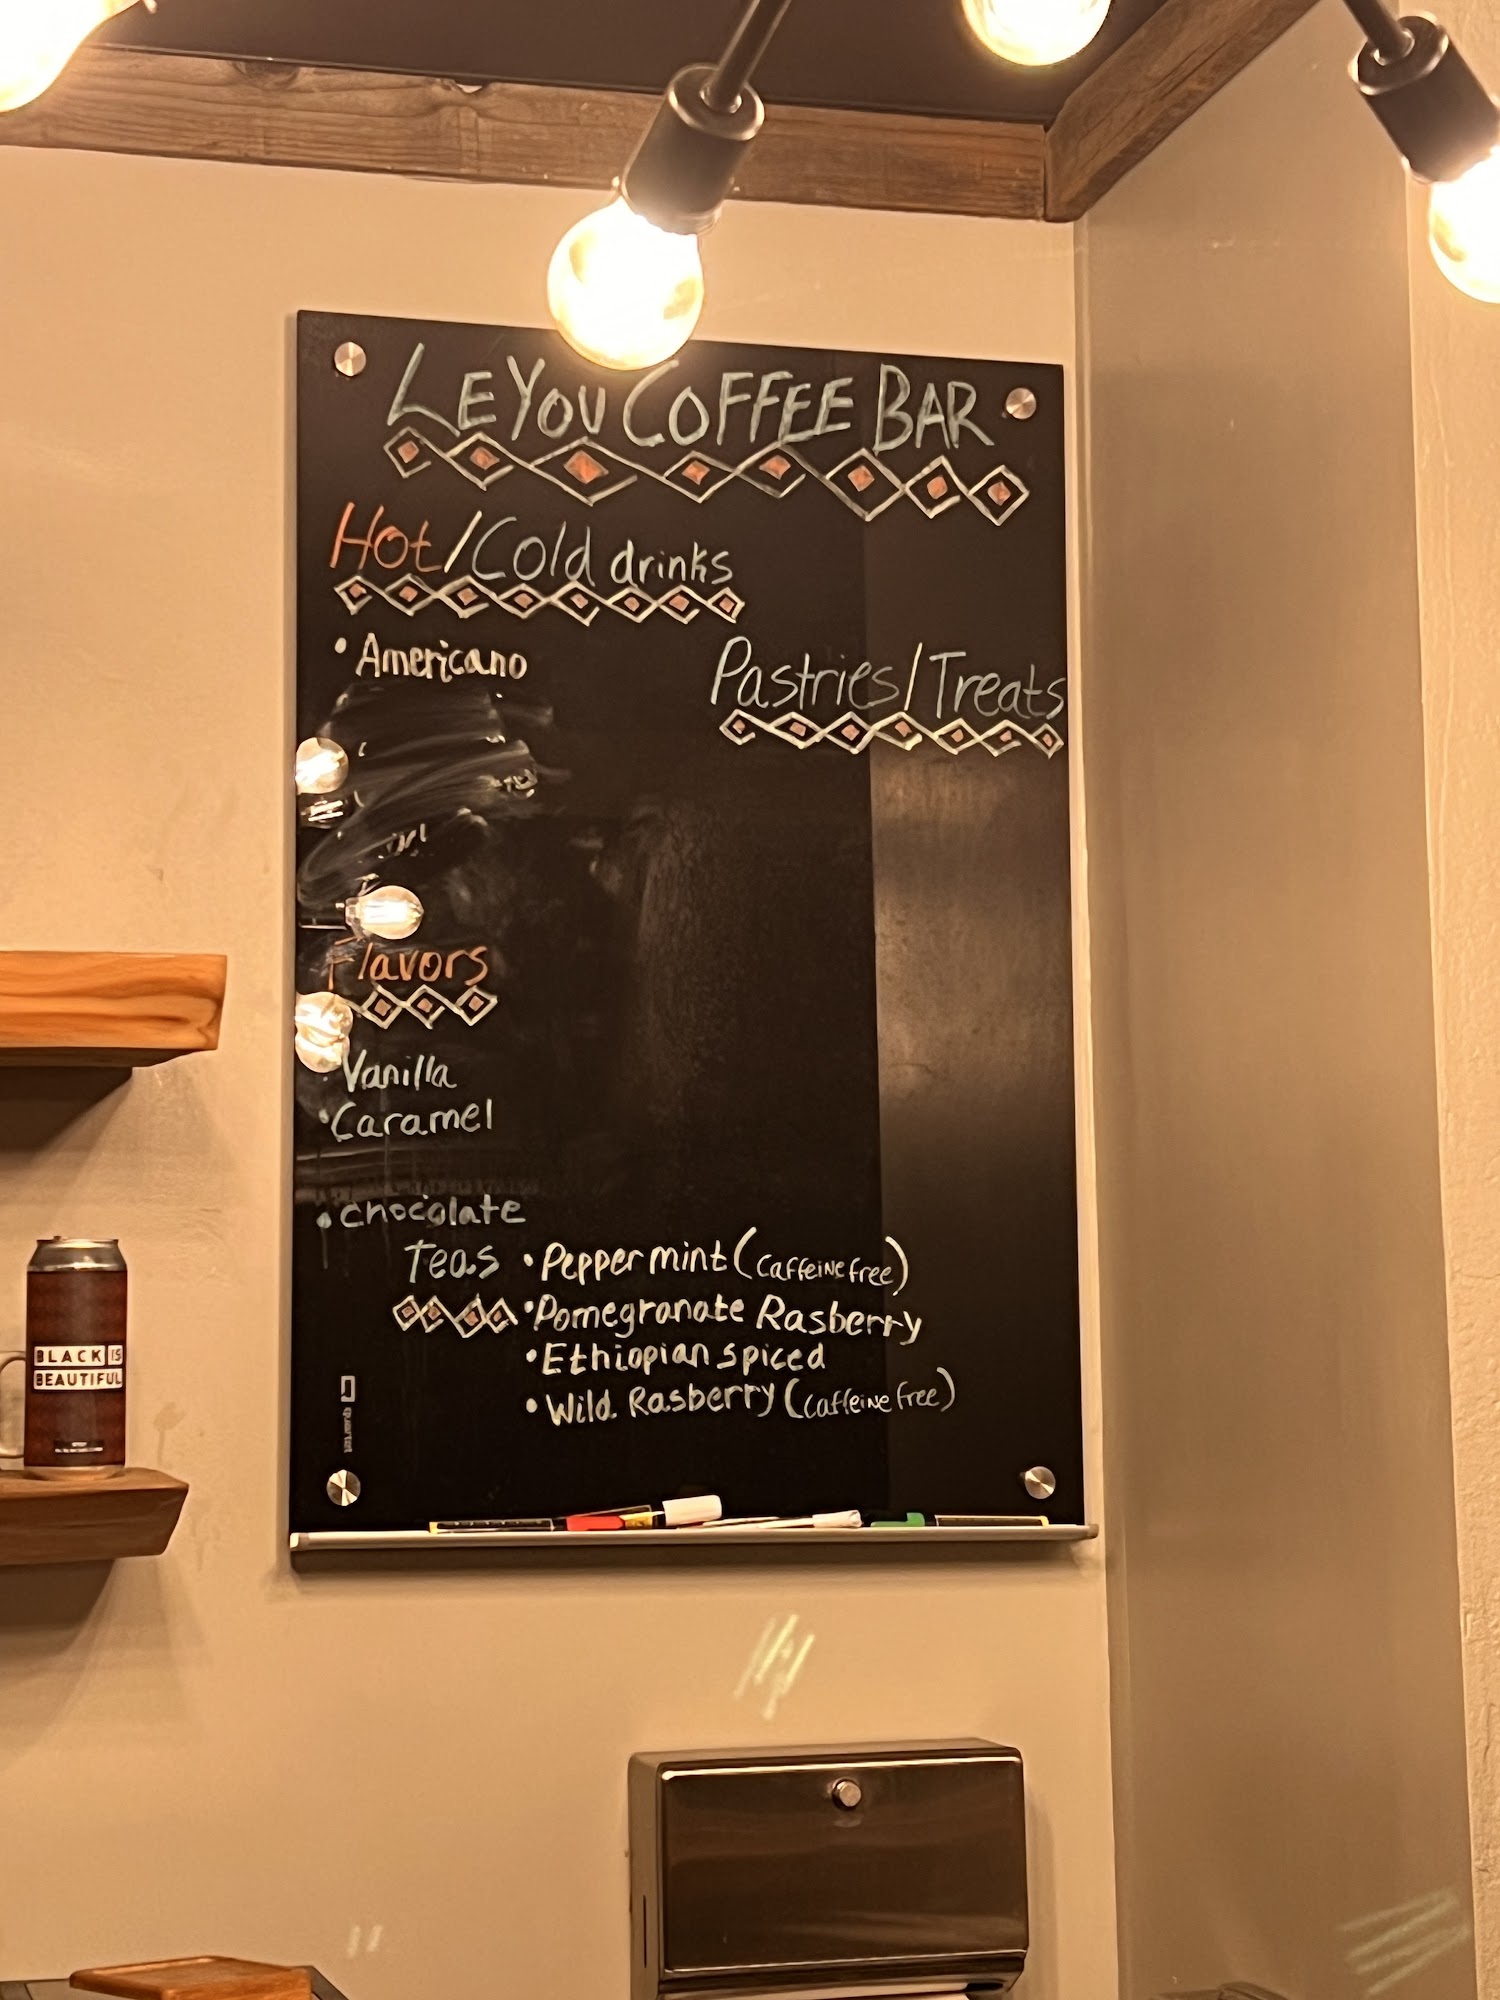 LEYOU COFFEE BAR
Hot/Cold drinks
• Americano
Pastries/Treats
Flavors
Vanilla
• Caramel
• chocolate
Teas
• Peppermint (caffeine free)
• Pomegranate Rasberry
• Ethiopian spiced
• Wild Rasberry (caffeine free)
quartet
BLACK IS
BEAUTIFUL